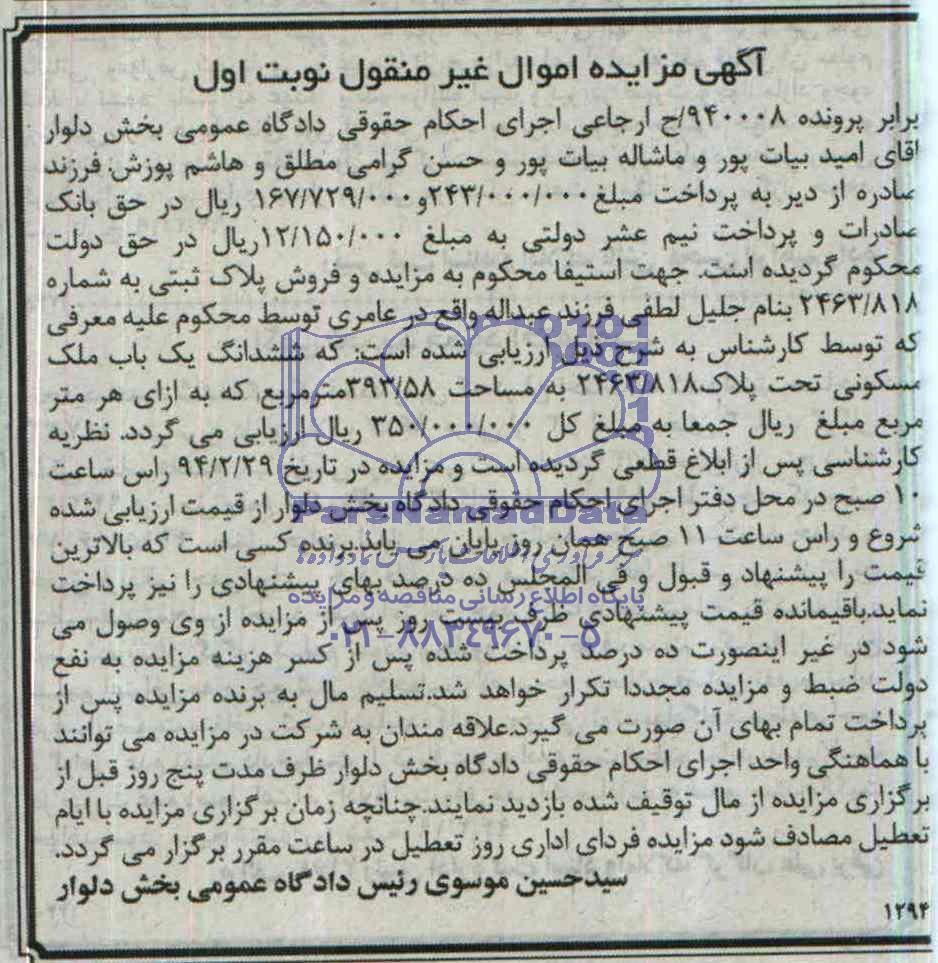 آگهی مزایده اموال غیر منقول نوبت اول
برابر پرونده ۹۴۰۰۰۸/ح ارجاعی اجرای احکام حقوقی دادگاه عمومی بخش دلوار
اقای امید بیات پور و ماشاله بیات پور و حسن گرامی مطلق و هاشم پوزش فرزند
صادره از دیر به پرداخت مبلغ ۲۴۳/۰۰۰/۰۰۰و۱۶۷/۷۲۹/۰۰۰ ریال در حق بانک
صادرات و پرداخت نیم عشر دولتی به مبلغ ۱۲/۱۵۰/۰۰۰ریال در حق دولت
محکوم گردیده است. جهت استیفا محکوم به مزایده و فروش پلاک ثبتی به شماره
۲۴۶۳/۸۱۸ بنام جلیل لطفی فرزند عبداله واقع در عامری توسط محکوم علیه معرفی
که توسط کارشناس به شرح ذیل ارزیابی شده است: که ششدانگ یک باب ملک
مسکونی تحت پلاک۲۴۶۳/۸۱۸ به مساحت ۳۹۳/۵۸مترمربع که به ازای هر متر
مربع مبلغ ریال جمعا به مبلغ کل ۳۵۰/۰۰۰/۰۰۰ ریال ارزیابی می گردد. نظریه
کارشناسی پس از ابلاغ قطعی گردیده است و مزایده در تاریخ ۹۴/۲/۲۹ راس ساعت
۱۰ صبح در محل دفتر اجرای احکام حقوقی دادگاه بخش دلوار از قیمت ارزیابی شده
شروع و راس ساعت ۱۱ صبح همان روز پایان می یابد.برنده کسی است که بالاترین
قیمت را پیشنهاد و قبول و فی المجلس ده درصد بهای پیشنهادی را نیز پرداخت
نماید.باقیمانده قیمت پیشنهادی ظرف بیست روز پس از مزایده از وی وصول می
شود در غیر اینصورت ده درصد پرداخت شده پس از کسر هزینه مزایده به نفع
دولت ضبط و مزایده مجددا تکرار خواهد شد.تسلیم مال به برنده مزایده پس از
پرداخت تمام بهای آن صورت می گیرد.علاقه مندان به شرکت در مزایده می توانند
با هماهنگی واحد اجرای احکام حقوقی دادگاه بخش دلوار ظرف مدت پنج روز قبل از
برگزاری مزایده از مال توقیف شده بازدید نمایند.چنانچه زمان برگزاری مزایده با ایام
تعطیل مصادف شود مزایده فردای اداری روز تعطیل در ساعت مقرر برگزار می گردد.
سیدحسین موسوی رئیس دادگاه عمومی بخش دلوار
۱۲۹۴
ParsNamadData
پایگاه اطلاع رسانی مناقصه و مزایده
۰۲۱-۸۸۳۴۹۶۷۰-۵